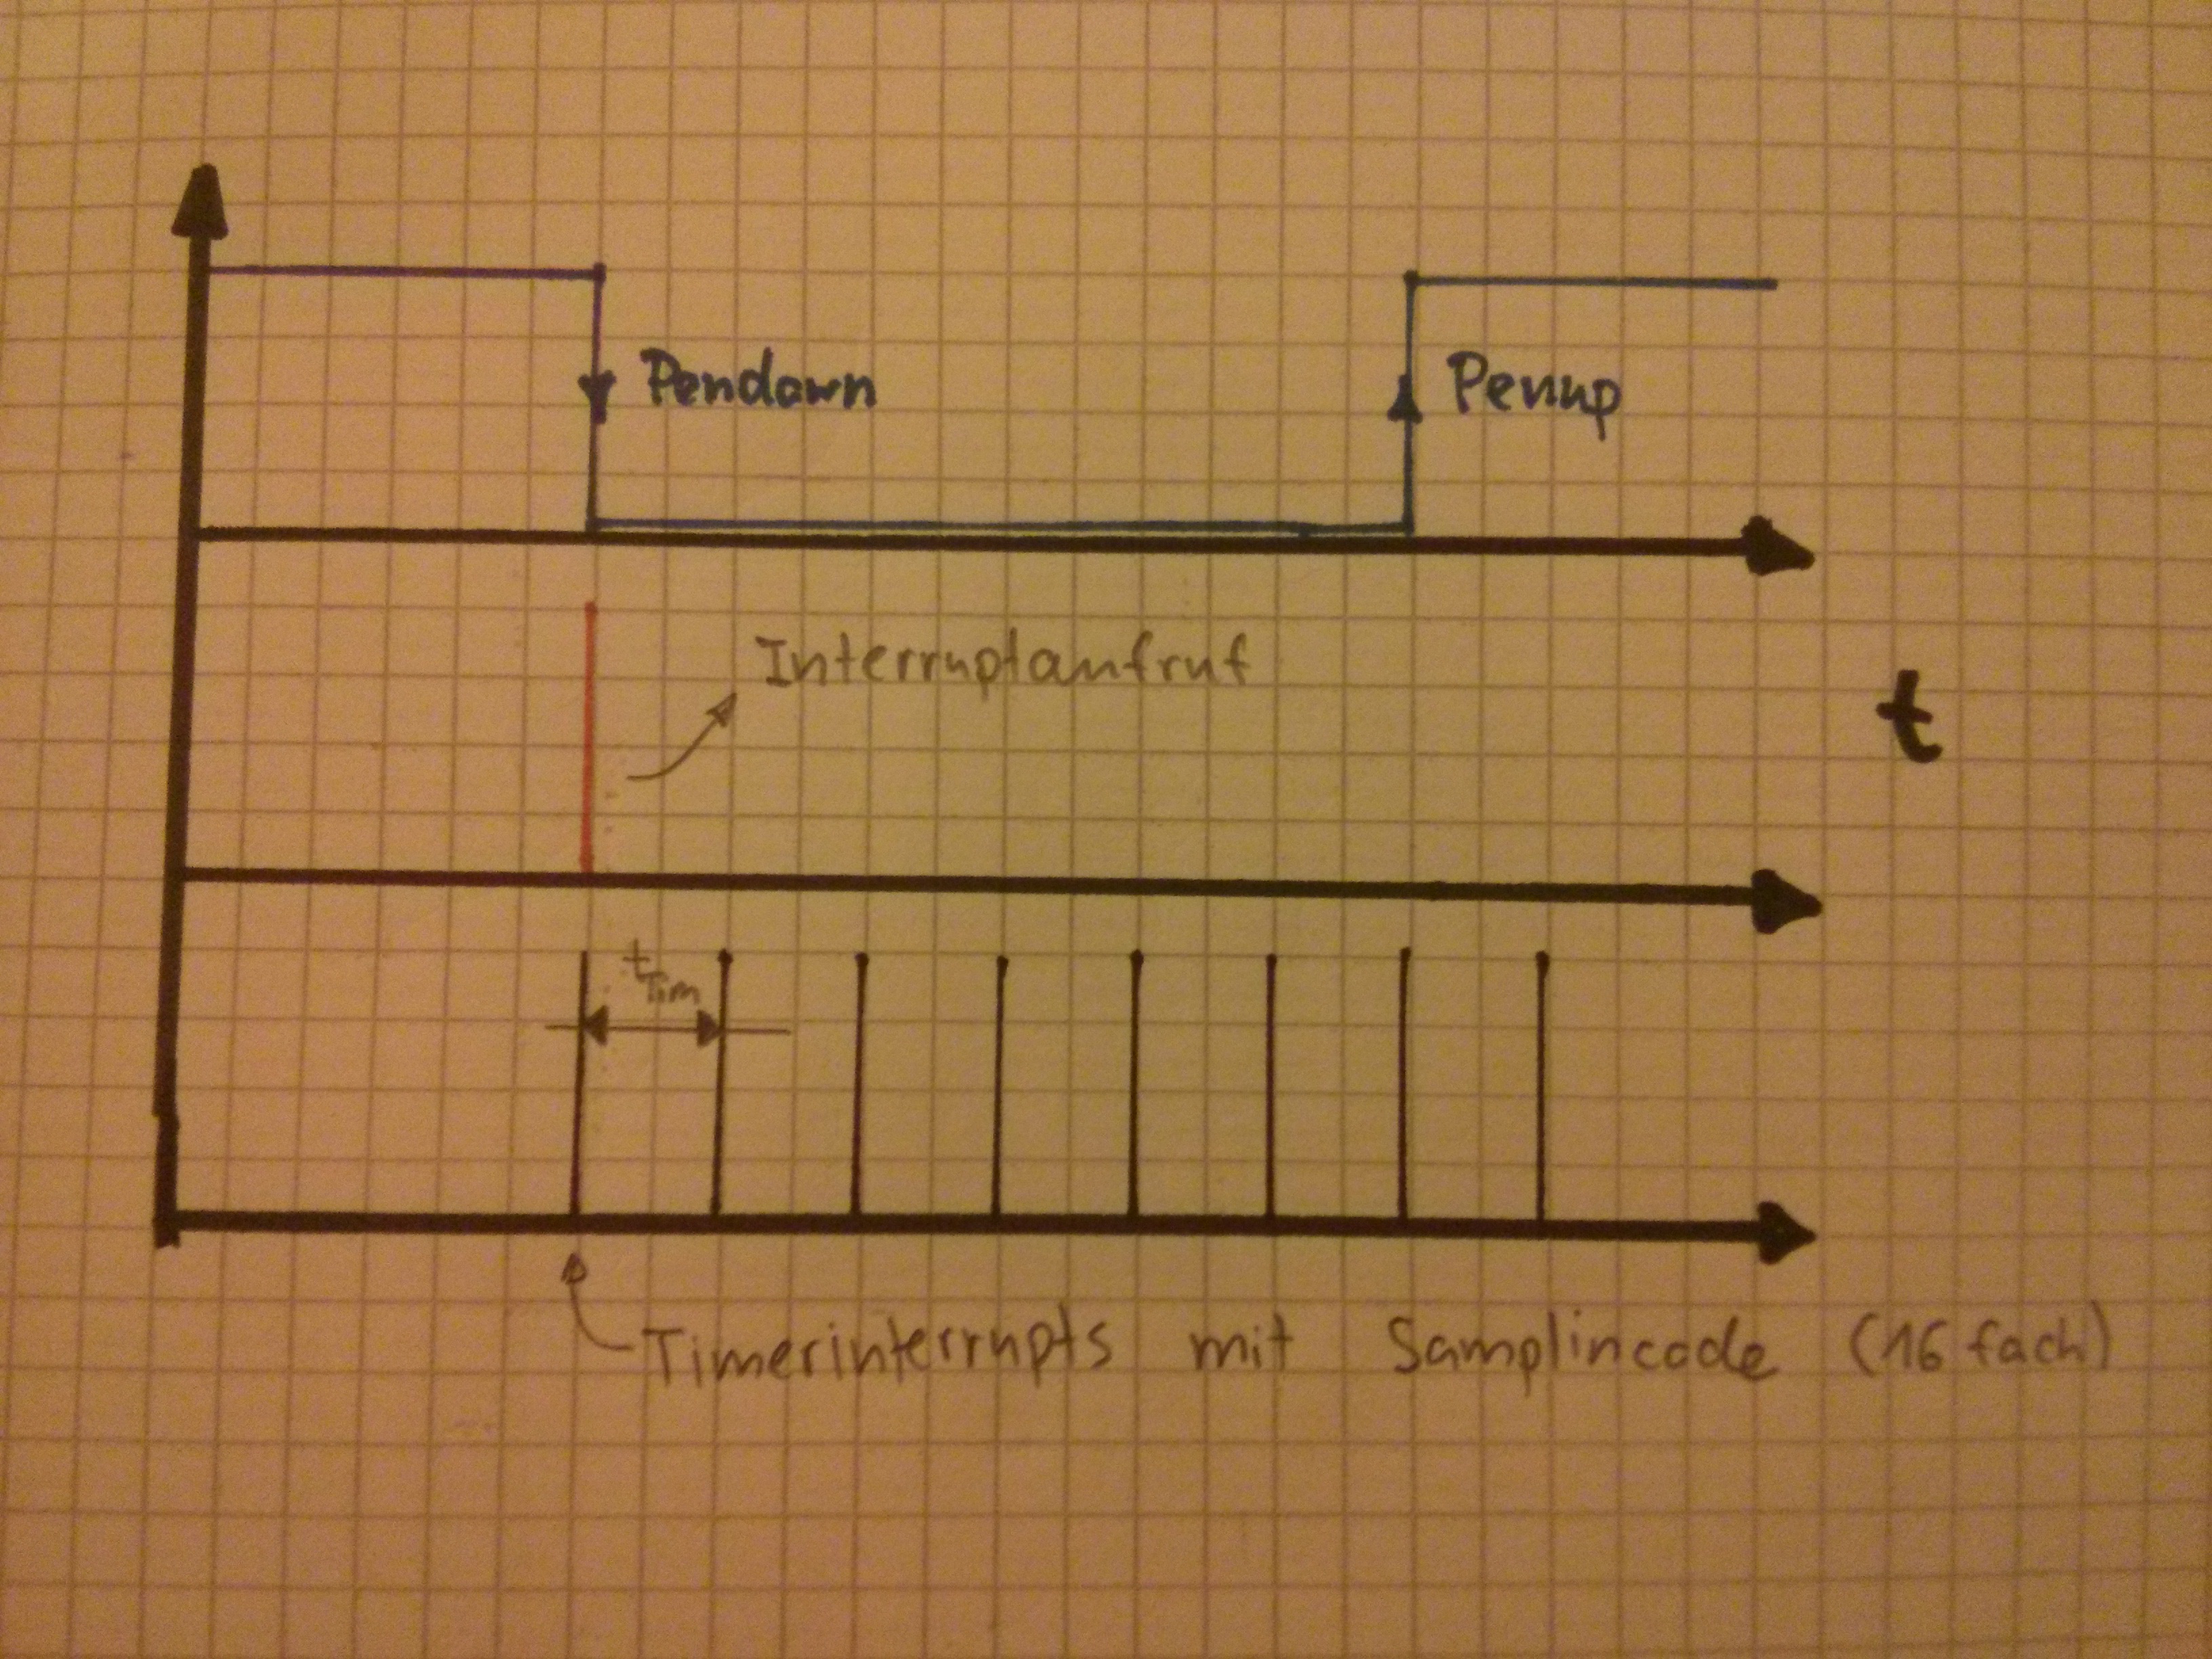 Pendown
Penup
Interruptaufruf
t
tTim
Timerinterrupts mit Samplincode (16 fach)